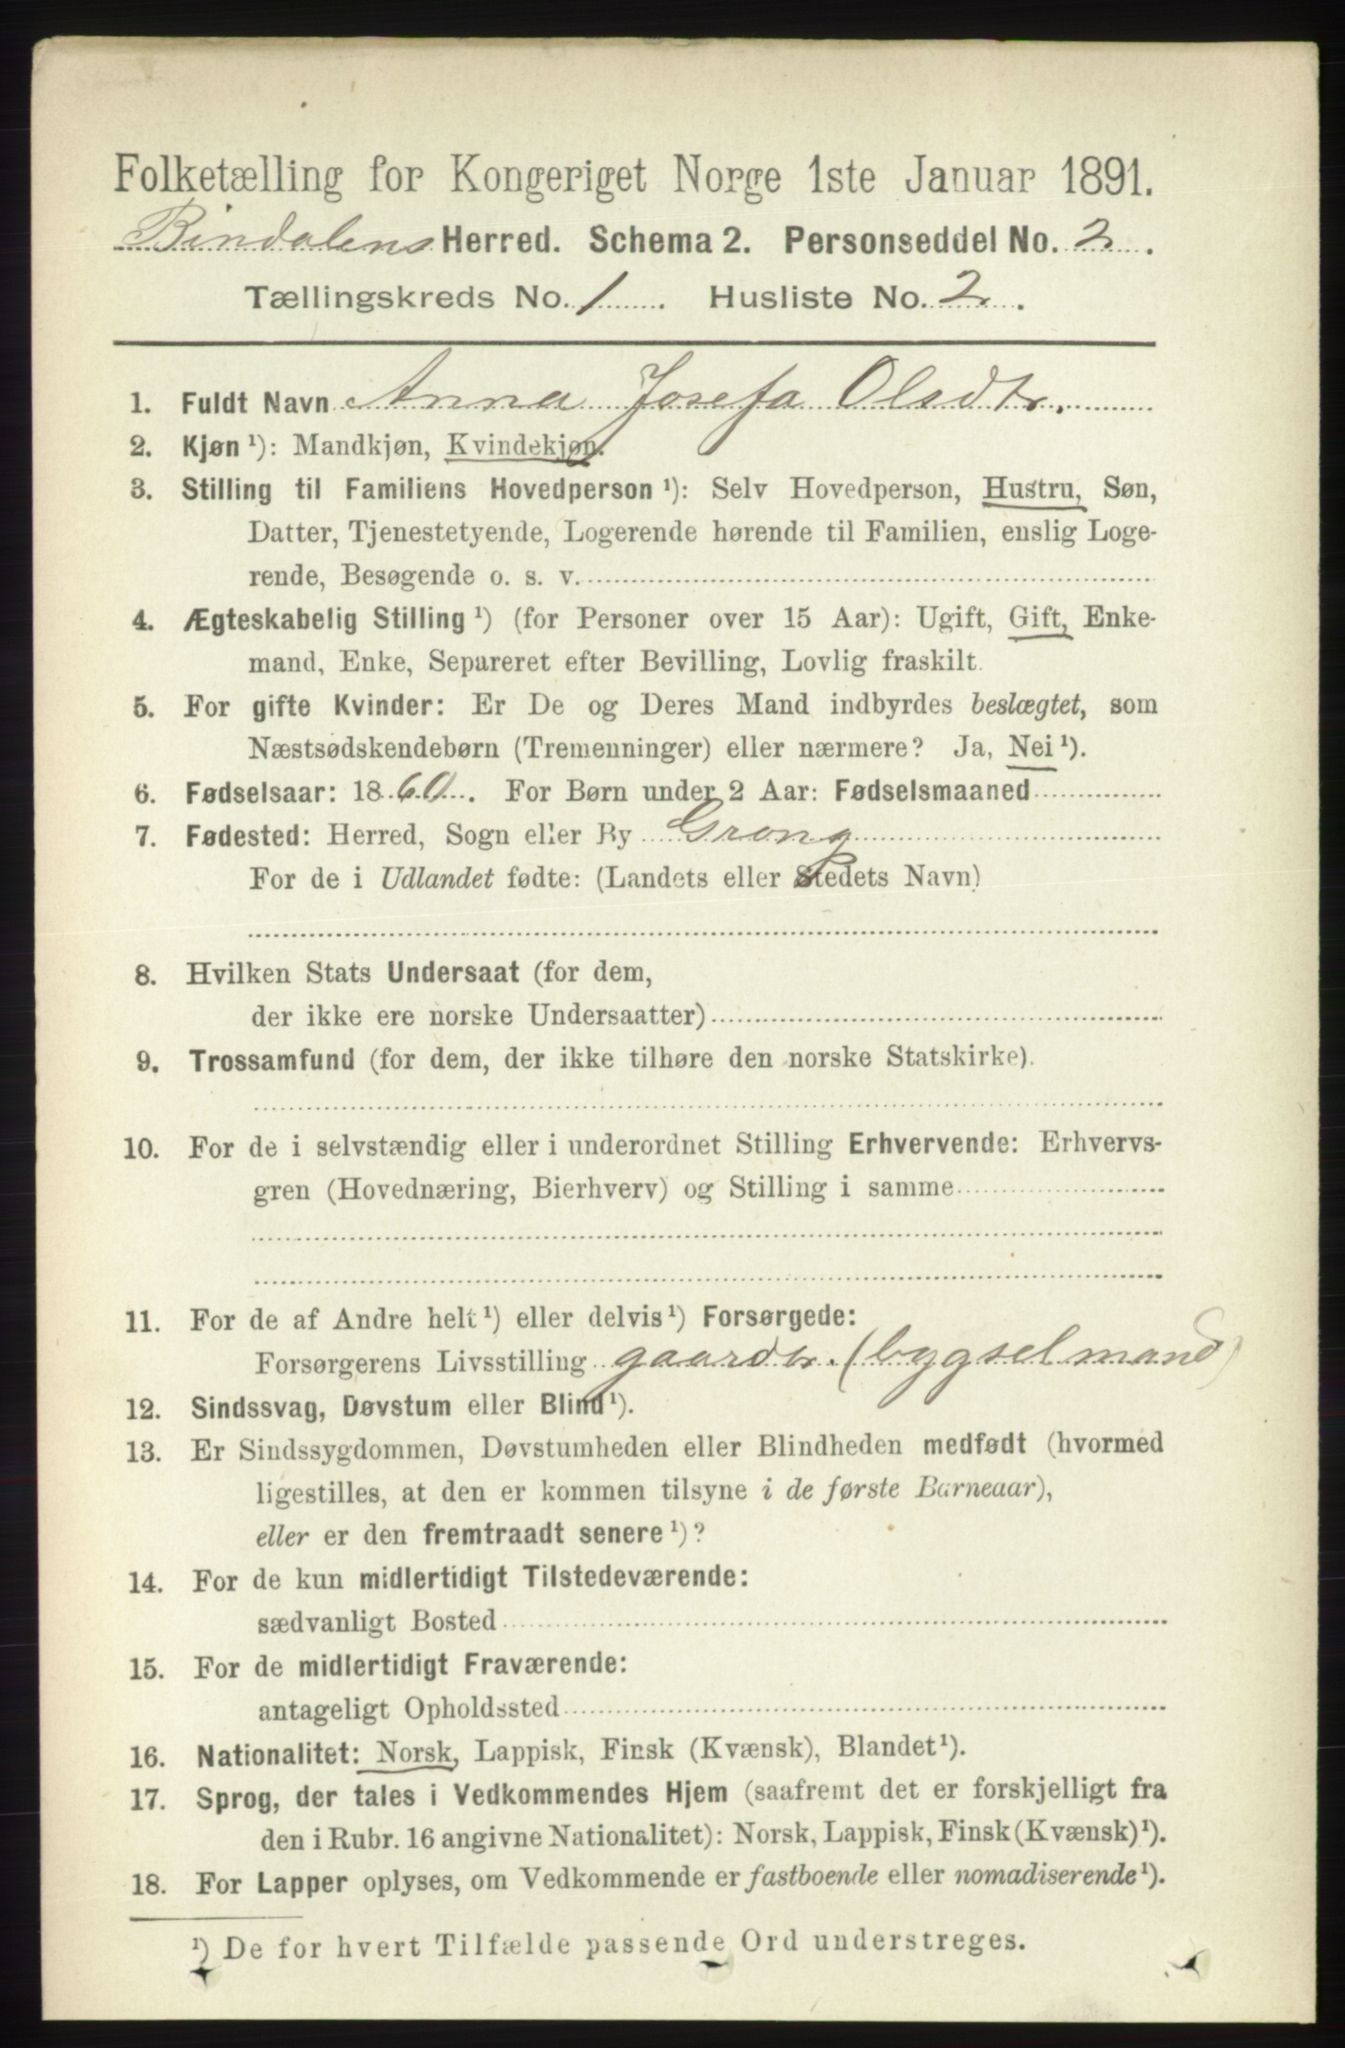 Folketælling for Kongeriget Norge 1ste Januar 1891.
Bindalens Herred. Schema 2. Personseddel No. 2.
Tællingskreds No. 1. Husliste No. 2.
1. Fuldt Navn Anna Josefa Olsdtr.
2. Kjøn ¹): Mandkjøn, Kvindekjøn.
3. Stilling til Familiens Hovedperson ¹): Selv Hovedperson, Hustru, Søn,
Datter, Tjenestetyende, Logerende hørende til Familien, enslig Loge-
rende, Besøgende o. s. v.
4. Ægteskabelig Stilling ¹) (for Personer over 15 Aar): Ugift, Gift, Enke-
mand, Enke, Separeret efter Bevilling, Lovlig fraskilt.
5. For gifte Kvinder: Er De og Deres Mand indbyrdes beslægtet, som
Næstsødskendebørn (Tremenninger) eller nærmere? Ja, Nei ¹).
6. Fødselsaar: 1860. For Børn under 2 Aar: Fødselsmaaned
7. Fødested: Herred, Sogn eller By Grong
For de i Udlandet fødte: (Landets eller Stedets Navn)
8. Hvilken Stats Undersaat (for dem,
der ikke ere norske Undersaatter)
9. Trossamfund (for dem, der ikke tilhøre den norske Statskirke).
10. For de i selvstændig eller i underordnet Stilling Erhvervende: Erhvervs-
gren (Hovednæring, Bierhverv) og Stilling i samme
11. For de af Andre helt ¹) eller delvis ¹) Forsørgede:
Forsørgerens Livsstilling gaardbr. (bygselmand)
12. Sindssvag, Døvstum eller Blind ¹).
13. Er Sindssygdommen, Døvstumheden eller Blindheden medfødt (hvormed
ligestilles, at den er kommen tilsyne i de første Barneaar),
eller er den fremtraadt senere ¹)?
14. For de kun midlertidigt Tilstedeværende:
sædvanligt Bosted
15. For de midlertidigt Fraværende:
antageligt Opholdssted
16. Nationalitet: Norsk, Lappisk, Finsk (Kvænsk), Blandet ¹).
17. Sprog, der tales i Vedkommendes Hjem (saafremt det er forskjelligt fra
den i Rubr. 16 angivne Nationalitet): Norsk, Lappisk, Finsk (Kvænsk) ¹).
18. For Lapper oplyses, om Vedkommende er fastboende eller nomadiserende ¹).
¹) De for hvert Tilfælde passende Ord understreges.